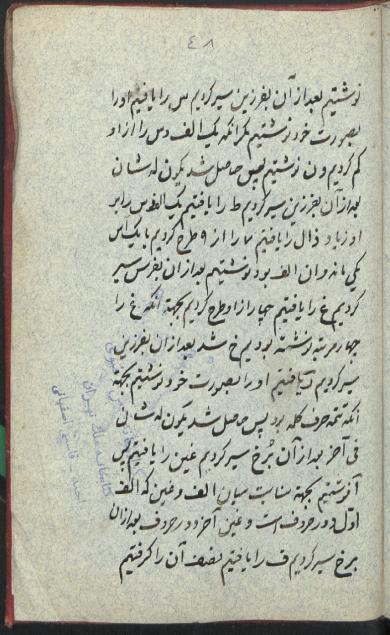 ٤٨
نوشتیم بعد از آن بفرزین سیر کردیم س را یافتیم او را
بصورت خود نوشتیم مگر آنکه یک الف و س را از او
کم کردیم و ن نوشتیم پس حاصل شد یکون له شان
بعد از آن بفرزین سیر کردیم ط را یافتیم یک الف س را بر
او زیاد و ذال را یافتیم ما را از ۹ طرح کردیم با یک اس
یکی ماند و ان الف بود نوشتیم بعد از ان بفرس سیر
کردیم غ را یافتیم چهار از او طرح کردیم بجهة آنکه غ را
چهار مرتبه نوشته بودیم خ شد بعد از ان بفرزین
سیر کردیم یافتیم او را بصورت خود نوشتیم بجهة
آنکه تتمه حرف کله بود پس حاصل شد یکون له شان
فی آخر بعد از آن برخ سیر کردیم غین را یافتیم پس
آ نوشتیم بجهة مناسبت میان الف و غین که الف
اول دور حروف است و غین آخر دور حروف بعد از ان
برخ سیر کردیم ف را یافتیم نصف آن را گرفتیم
کتابخانه تهران
احمد